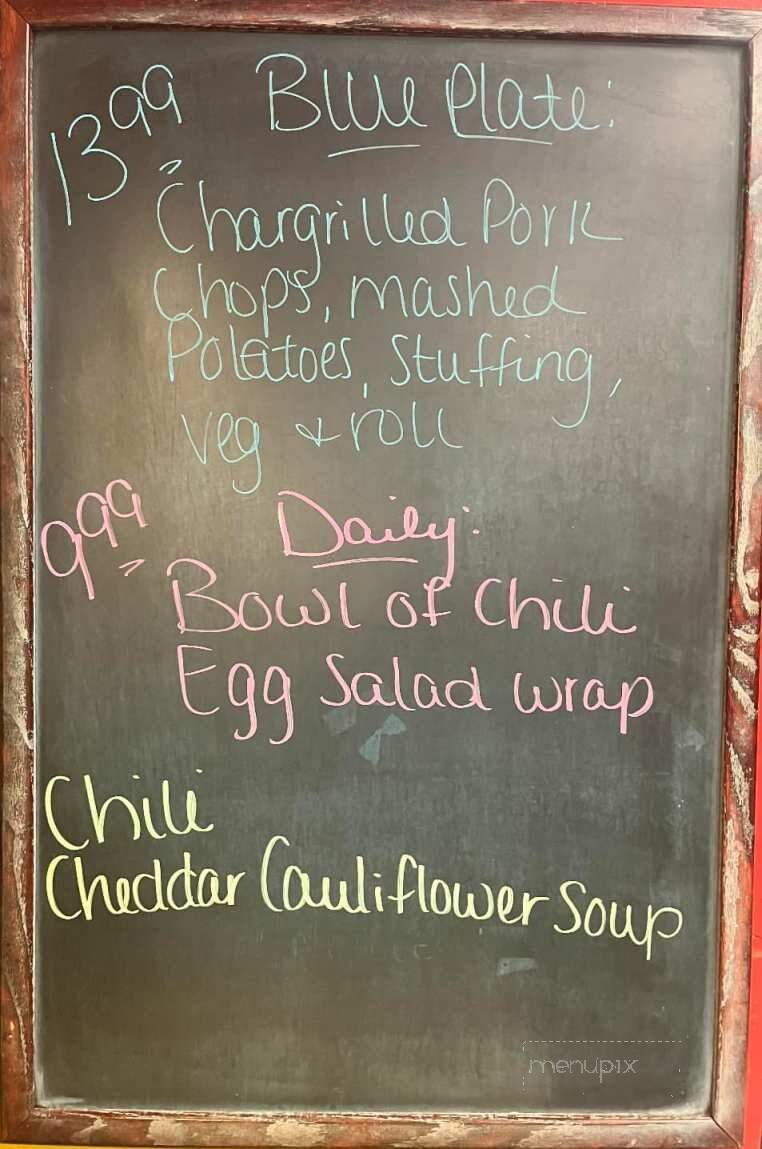 13.99 Blue Plate:
Chargrilled Pork
Chops, mashed
Potatoes, Stuffing,
veg & roll
9.99 Daily:
Bowl of Chili
Egg Salad wrap
Chili
Cheddar Cauliflower Soup
menupix